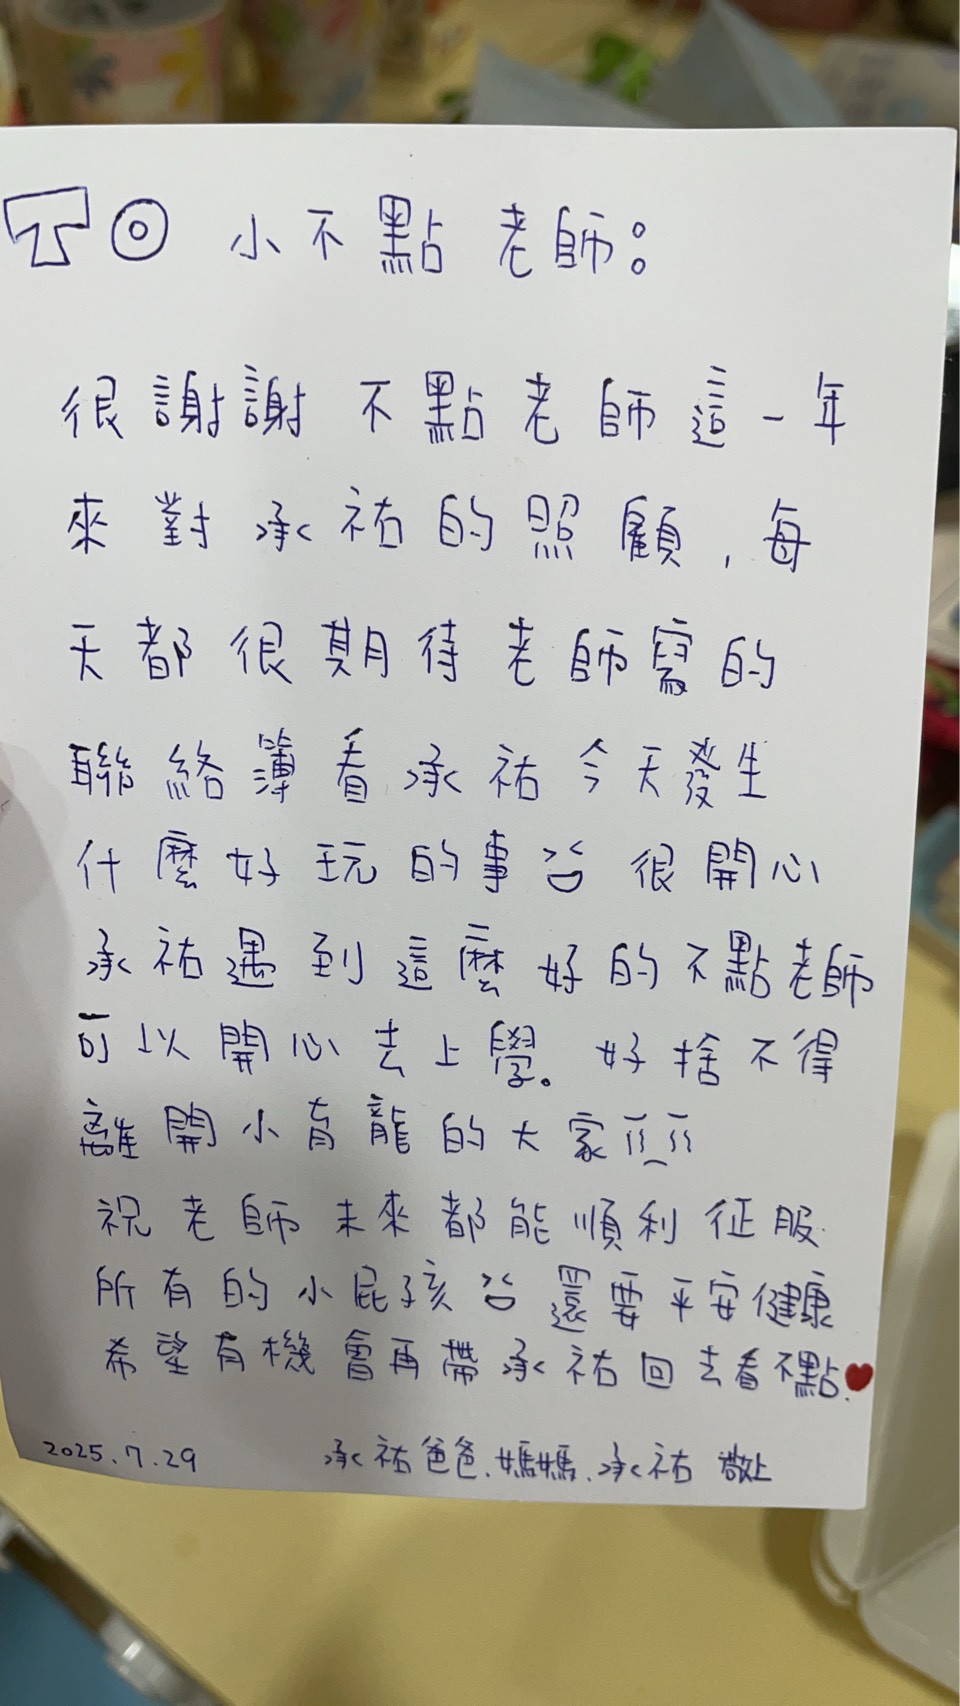 TO 小不點老師：
很謝謝不點老師這一年
來對承祐的照顧，每
天都很期待老師寫的
聯絡簿看承祐今天發生
什麼好玩的事 很開心
承祐遇到這麼好的不點老師
可以開心去上學。好捨不得
離開小青龍的大家
祝老師未來都能順利征服
所有的小屁孩 還要平安健康
希望有機會再帶承祐回去看不點
2025.7.29 承祐爸爸、媽媽、承祐 敬上